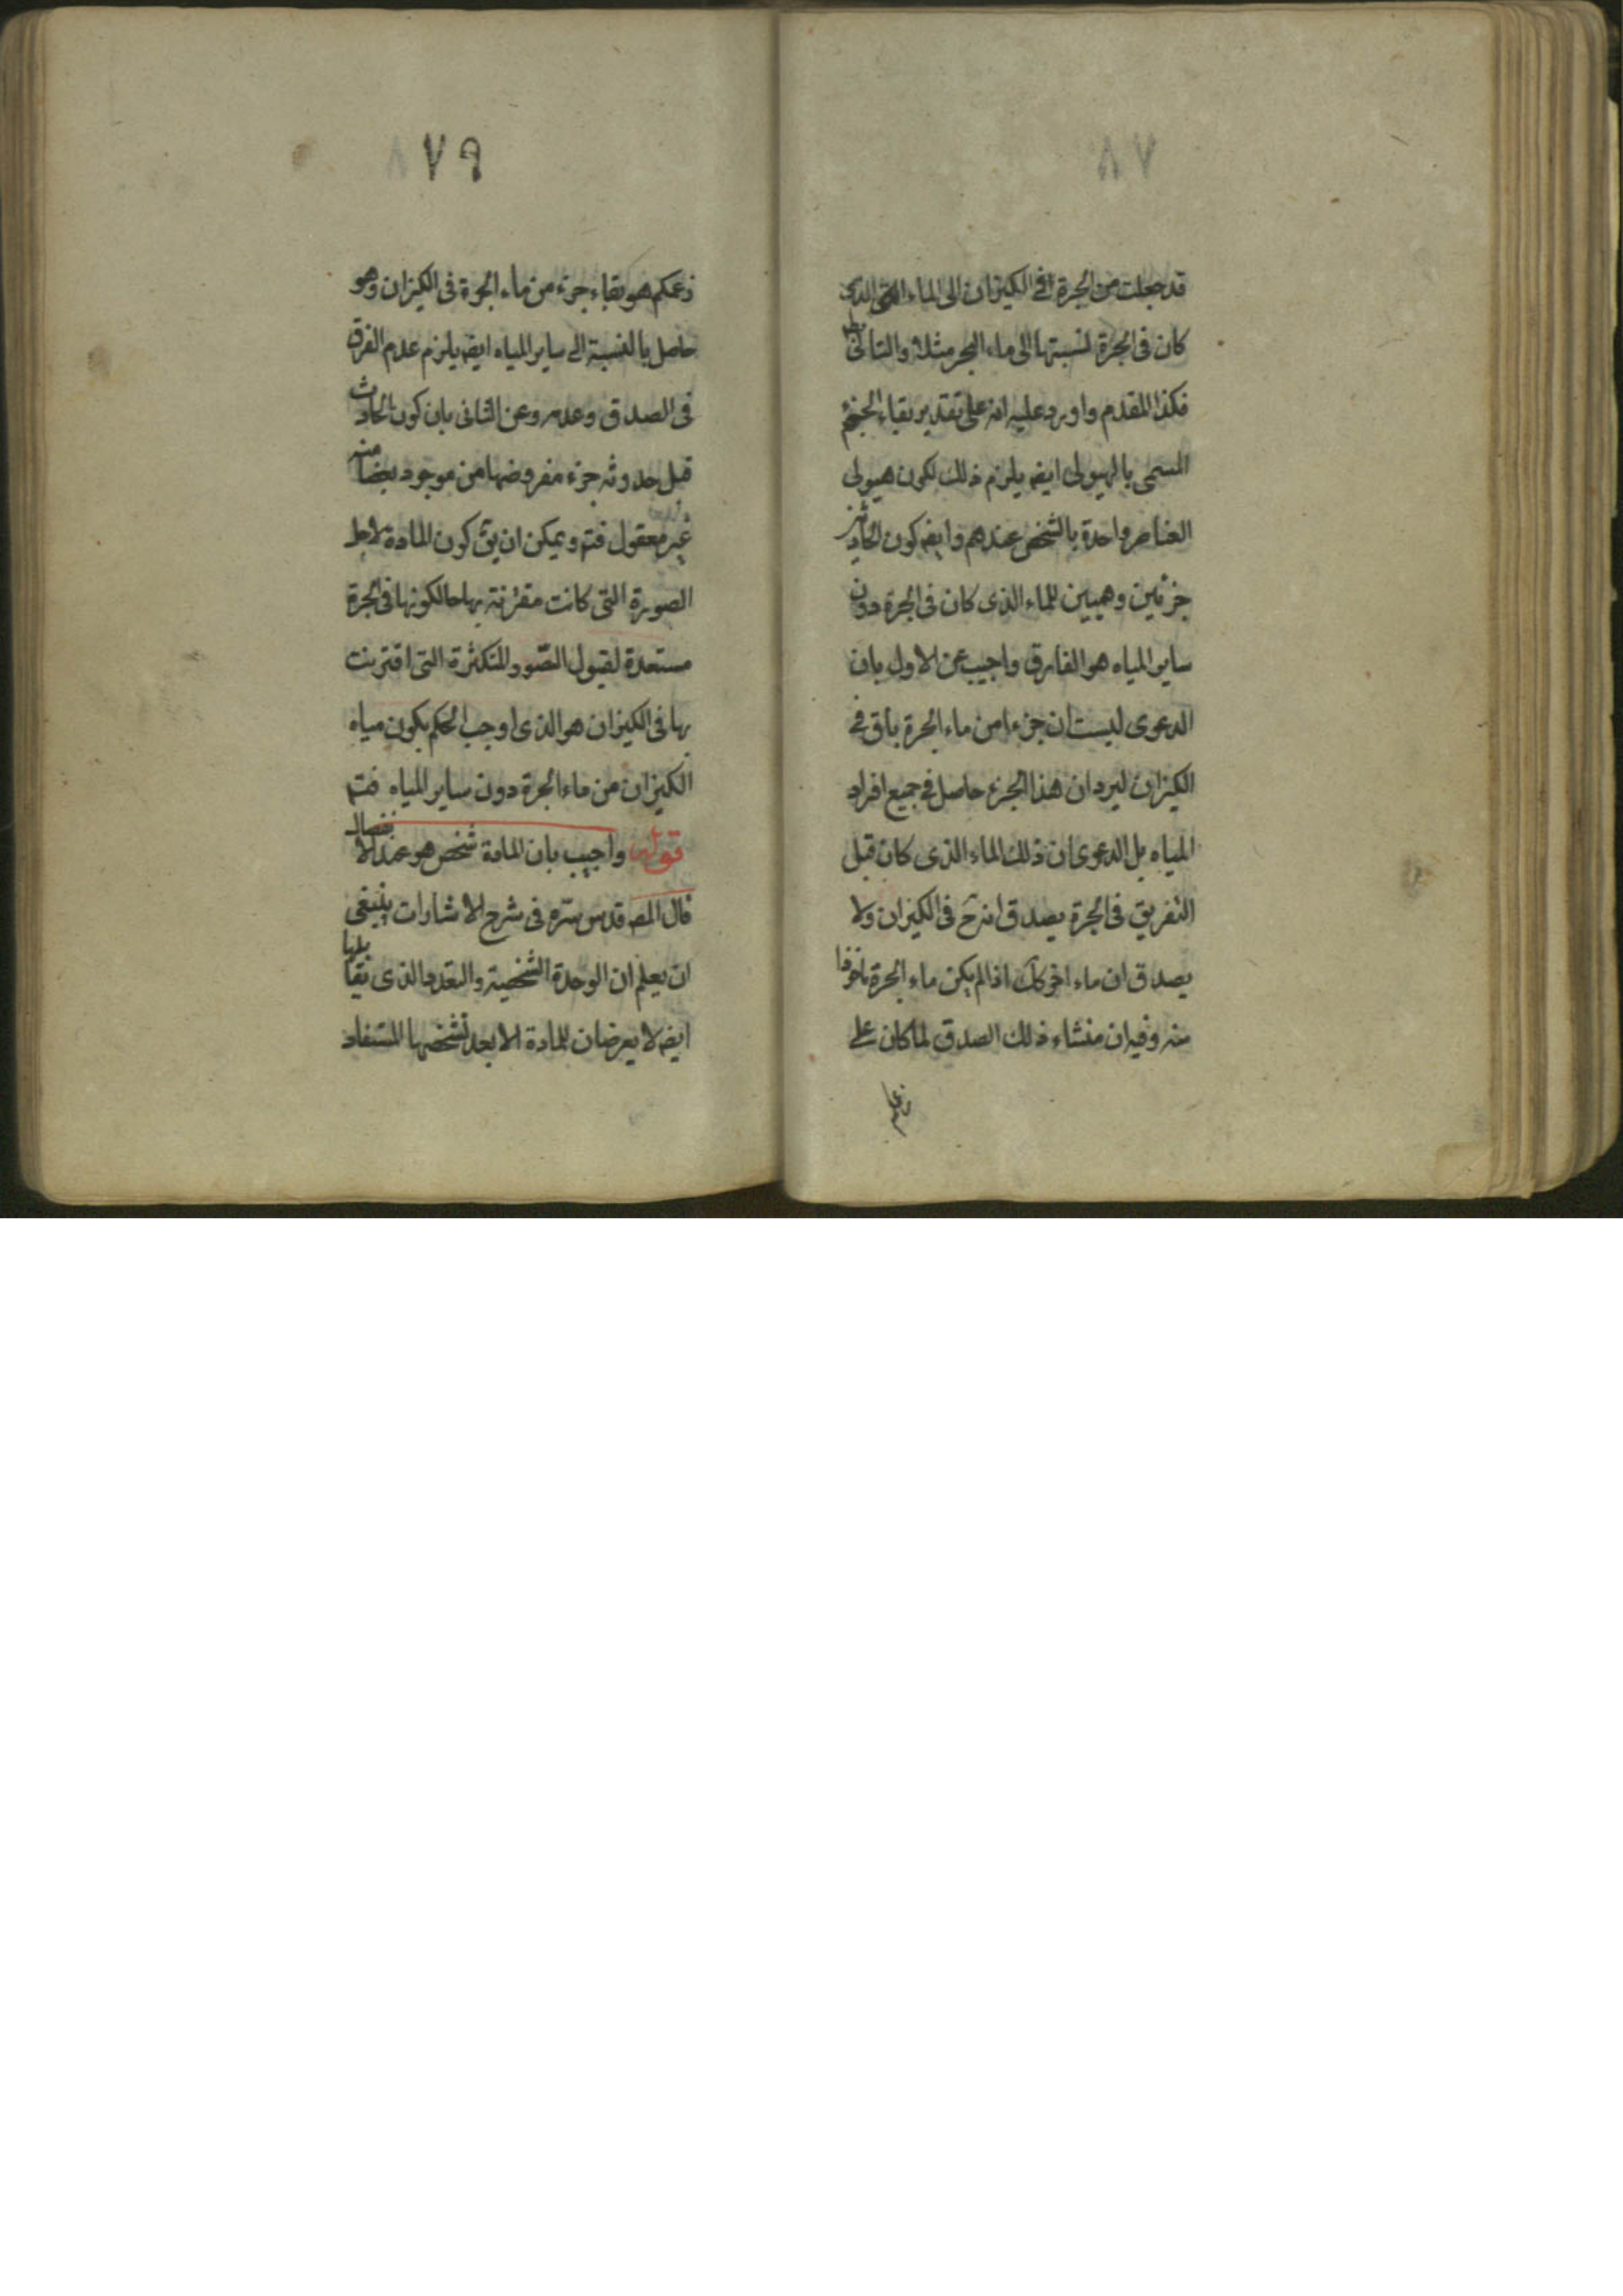 ٧٨
قد جعلت من الجرة في الكيزان الى الماء الذى
كان فى الجرة لنسبتها الى ماء البحر مثلا والتالى بط
فكذا المقدم واورد عليه انه على تقدير بقاء الجزء
المسمى بالهيولى ايضه يلزم ذلك لكون هيولى
العناصر واحدة بالشخص عندهم وايضه كون الحادثين
جزئين وهميين للماء الذى كان فى الجرة دون
ساير المياه هو الفارق واجيب عن الاول بان
الدعوى ليست ان جزءا من ماء الجرة باق فى
الكيزان ليرد ان هذا الجزء حاصل فى جميع افراد
المياه بل الدعوى ان ذلك الماء الذى كان قبل
التفريق فى الجرة يصدق انه ح فى الكيزان ولا
يصدق ان ماء اخر كك اذا لم يكن ماء الجرة ماخوذا
منه وفيه ان منشاء ذلك الصدق لما كان على
زعمكم
٧٩
زعمكم هو بقاء جزء من ماء الجرة فى الكيزان وهو
حاصل بالنسبة الى ساير المياه ايضه يلزم عدم الفرق
فى الصدق وعدمه وعن الثانى بان كون الحادث
قبل حدوثه جزء مفروضها من موجود بعضا منه
غير معقول فتم ويمكن ان يق كون المادة لاجل
الصورة التى كانت مقترنة بها حالكونها فى الجرة
مستعدة لقبول الصّور المتكثرة التى اقترنت
بها فى الكيزان هو الذى اوجب الحكم بكون مياه
الكيزان من ماء الجرة دون ساير المياه فتم
قوله واجيب بان المادة شخص هو عند الانفصال
قال المصه قدس سره فى شرح الاشارات ينبغى
ان يعلم ان الوحدة الشخصية والتعدد الذى يقابلها
ايضه لا يعرضان للمادة الا بعد تشخصها المستفاد